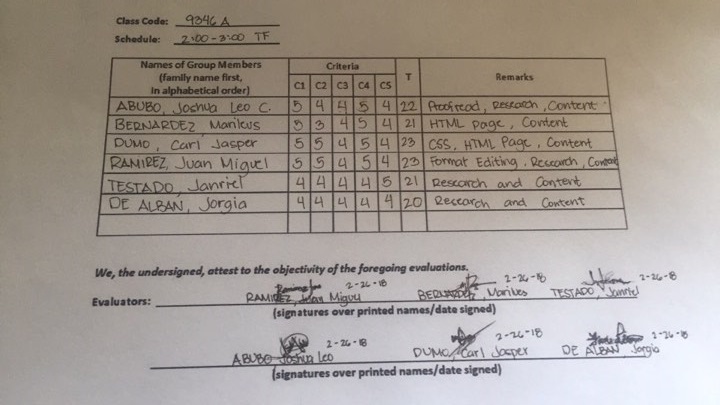 Class Code: 9346 A
Schedule: 2:00 - 3:00 TF
Names of Group Members
(family name first,
in alphabetical order)
Criteria
T
Remarks
C1 C2 C3 C4 C5
ABUBO, Joshua Leo C. 5 4 4 5 4 22 Proofread, Research, Content
BERNARDEZ Marikus 5 3 4 5 4 21 HTML Page, Content
DUMO, Carl Jasper 5 5 4 5 4 23 CSS, HTML Page, Content
RAMIREZ, Juan Miguel 5 5 4 5 4 23 Format Editing, Research, Content
TESTADO, Janriel 4 4 4 4 5 21 Research and Content
DE ALBAN, Jorgia 4 4 4 4 4 20 Research and Content
We, the undersigned, attest to the objectivity of the foregoing evaluations.
2-26-18 2-26-18 2-26-18
Evaluators: RAMIREZ, Juan Miguel BERNARDEZ, TESTADO, Janriel
(signatures over printed names/date signed)
2-26-18 2-26-18 2-26-18
ABUBO Joshua Leo DUMO, Carl Jasper DE ALBAN Jorgia
(signatures over printed names/date signed)